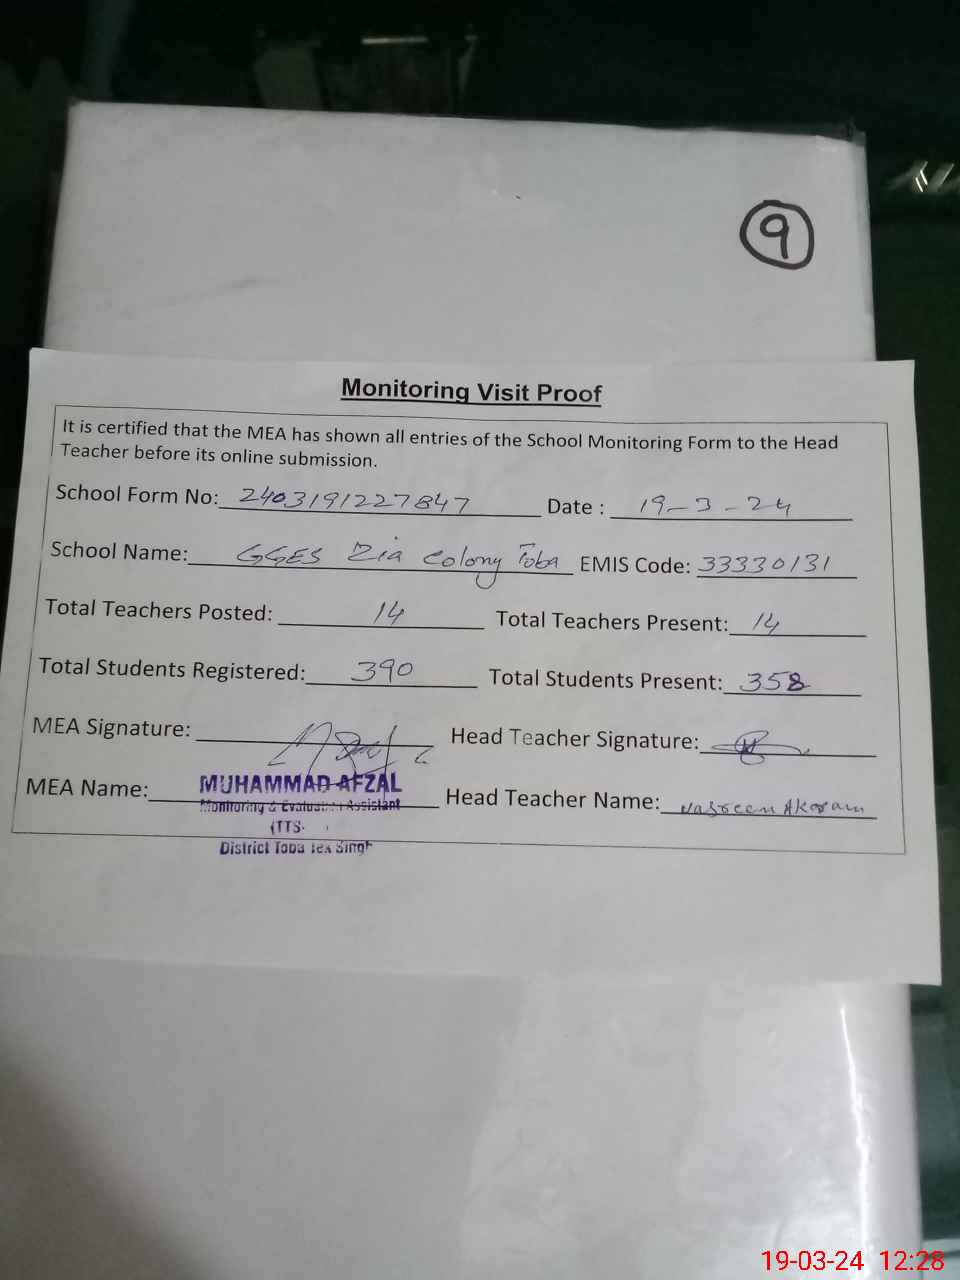 9
Monitoring Visit Proof
It is certified that the MEA has shown all entries of the School Monitoring Form to the Head
Teacher before its online submission.
School Form No: 2403191227847 Date : 19-3-24
School Name: GGES Zia Colony Toba EMIS Code: 33330131
Total Teachers Posted: 14 Total Teachers Present: 14
Total Students Registered: 390 Total Students Present: 358
MEA Signature: Head Teacher Signature:
MEA Name: MUHAMMAD AFZAL Head Teacher Name: Nasreen Akoram
Monitoring & Evaluation Assistant
District Toba Tek Singh
19-03-24 12:28